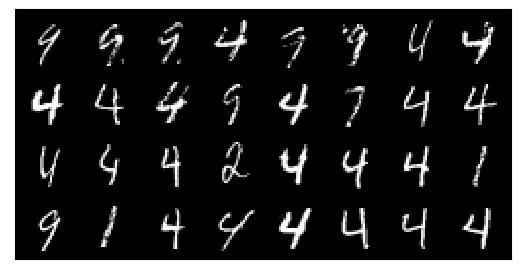 9 9 9 4 9 9 4 4
4 4 4 9 4 7 4 4
4 4 4 2 4 4 4 1
9 1 4 4 4 4 4 4